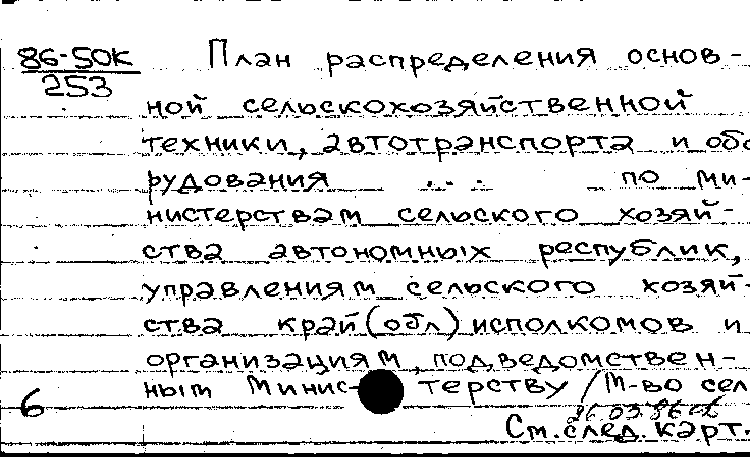 86-50К План распределения основ-
253
ной сельскохозяйственной
техники, автотранспорта и обо
рудования ... по ми-
нистерствам сельского хозяй-
ства автономных республик,
управлениям сельского хозяй-
ства край(обл)исполкомов и
организациям, подведомствен-
ным Минис-терству /М-во сел
6
26.03.86
См. след. карт.